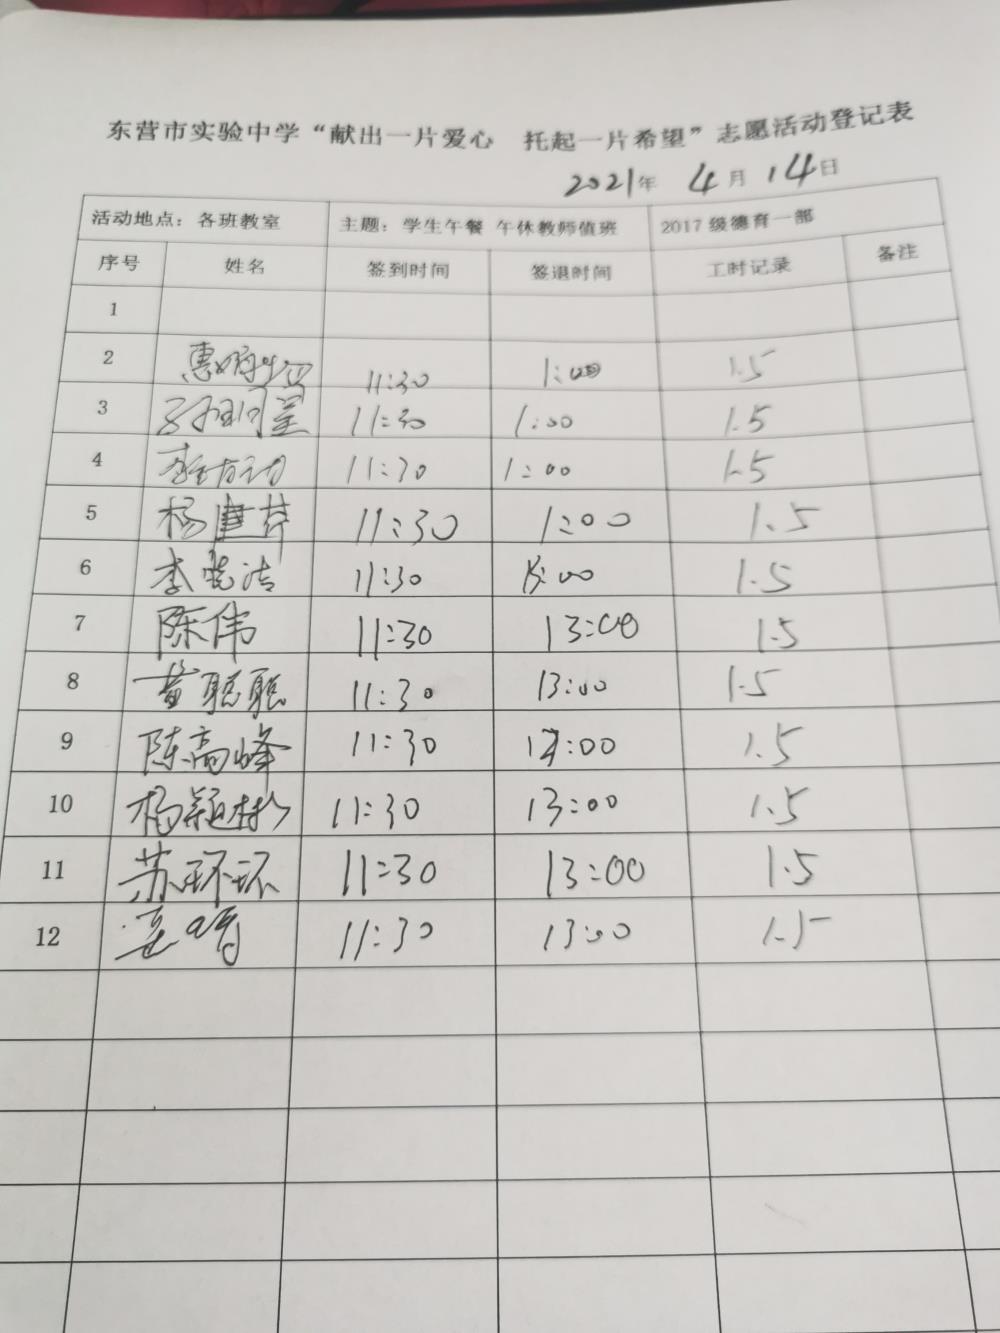 东营市实验中学“献出一片爱心 托起一片希望”志愿活动登记表
2021年 4月 14日
活动地点：各班教室 主题：学生午餐 午休教师值班 2017级德育一部
序号 姓名 签到时间 签退时间 工时记录 备注
1
2 11:30 1:00 1.5
3 11:30 1:00 1.5
4 11:30 1:00 1.5
5 杨建芬 11:30 1:00 1.5
6 李 洁 11:30 13:00 1.5
7 陈伟 11:30 13:00 1.5
8 黄聪聪 11:30 13:00 1.5
9 陈高峰 11:30 13:00 1.5
10 杨颖彬 11:30 13:00 1.5
11 苏环环 11:30 13:00 1.5
12 11:30 13:00 1.5